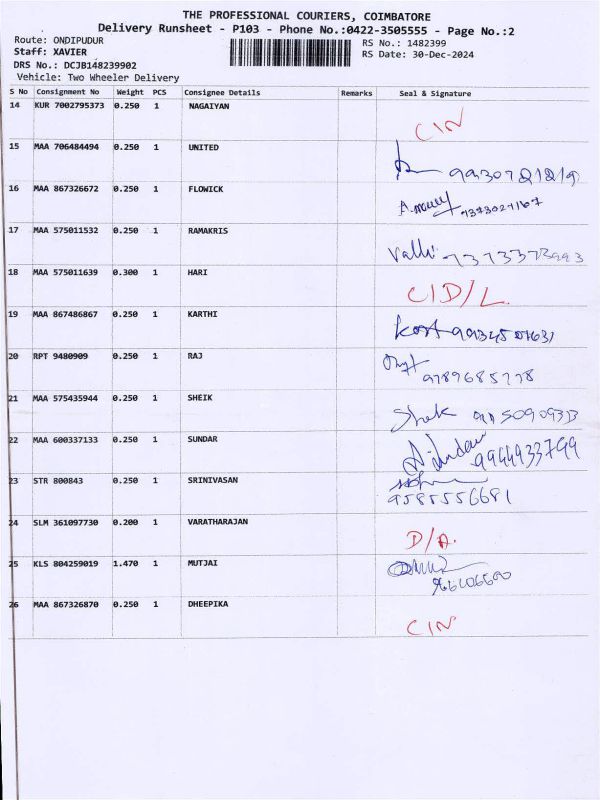 THE PROFESSIONAL COURIERS, COIMBATORE
Delivery Runsheet - P103 - Phone No.:0422-3505555 - Page No.:2
Route: ONDIPUDUR RS No.: 1482399
Staff: XAVIER RS Date: 30-Dec-2024
DRS No.: DCJB148239902
Vehicle: Two Wheeler Delivery
S No Consignment No Weight PCS Consignee Details Remarks Seal & Signature
14 KUR 7002795373 0.250 1 NAGAIYAN CIN
15 MAA 706484494 0.250 1 UNITED
16 MAA 867326672 0.250 1 FLOWICK
17 MAA 575011532 0.250 1 RAMAKRIS Valli 7373373993
18 MAA 575011639 0.300 1 HARI CID/L
19 MAA 867486867 0.250 1 KARTHI
20 RPT 9480909 0.250 1 RAJ 9789685778
21 MAA 575435944 0.250 1 SHEIK Shek
22 MAA 600337133 0.250 1 SUNDAR 9944933799
23 STR 800843 0.250 1 SRINIVASAN 9585556681
24 SLM 361097730 0.200 1 VARATHARAJAN D/A.
25 KLS 804259019 1.470 1 MUTJAI
26 MAA 867326870 0.250 1 DHEEPIKA CIN